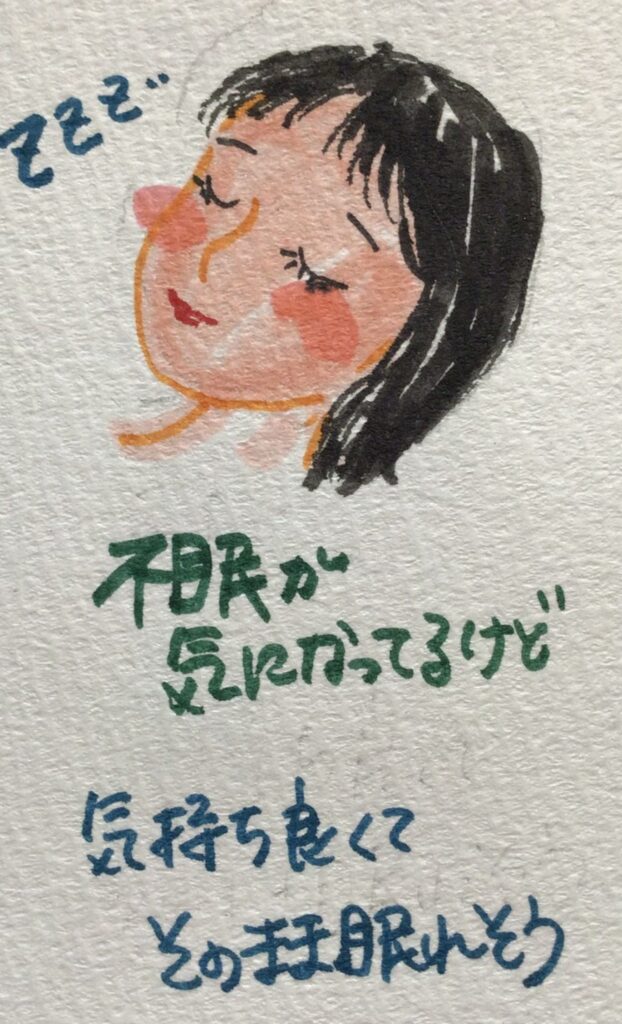 ZZZ゛
不眠が
気になってるけど
気持ち良くて
そのまま眠れそう